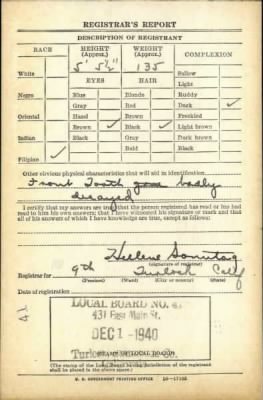 REGISTRAR'S REPORT
DESCRIPTION OF REGISTRANT
RACE
HEIGHT (Approx.)
WEIGHT (Approx.)
COMPLEXION
5' 5½"
135
White
Sallow
EYES
HAIR
Light
Negro
Blue
Blonde
Ruddy
Gray
Red
Dark ✓
Oriental
Hazel
Brown
Freckled
Brown ✓
Black ✓
Light brown
Indian
Black
Gray
Dark brown
Bald
Black
Filipino ✓
Other obvious physical characteristics that will aid in identification
Front Tooth gone badly
decayed
I certify that my answers are true; that the person registered has read or has had
read to him his own answers; that I have witnessed his signature or mark and that
all of his answers of which I have knowledge are true, except as follows:
Helene Sonntag
(Signature of registrar)
Registrar for 9th Turlock Calif
(Precinct) (Ward) (City or county) (State)
Date of registration
LOCAL BOARD NO.
431 East Main St.
DEC 1 - 1940
STAMP OF LOCAL BOARD
(The stamp of the Local Board having jurisdiction of the registrant
shall be placed in the above space.)
U. S. GOVERNMENT PRINTING OFFICE 16-17105